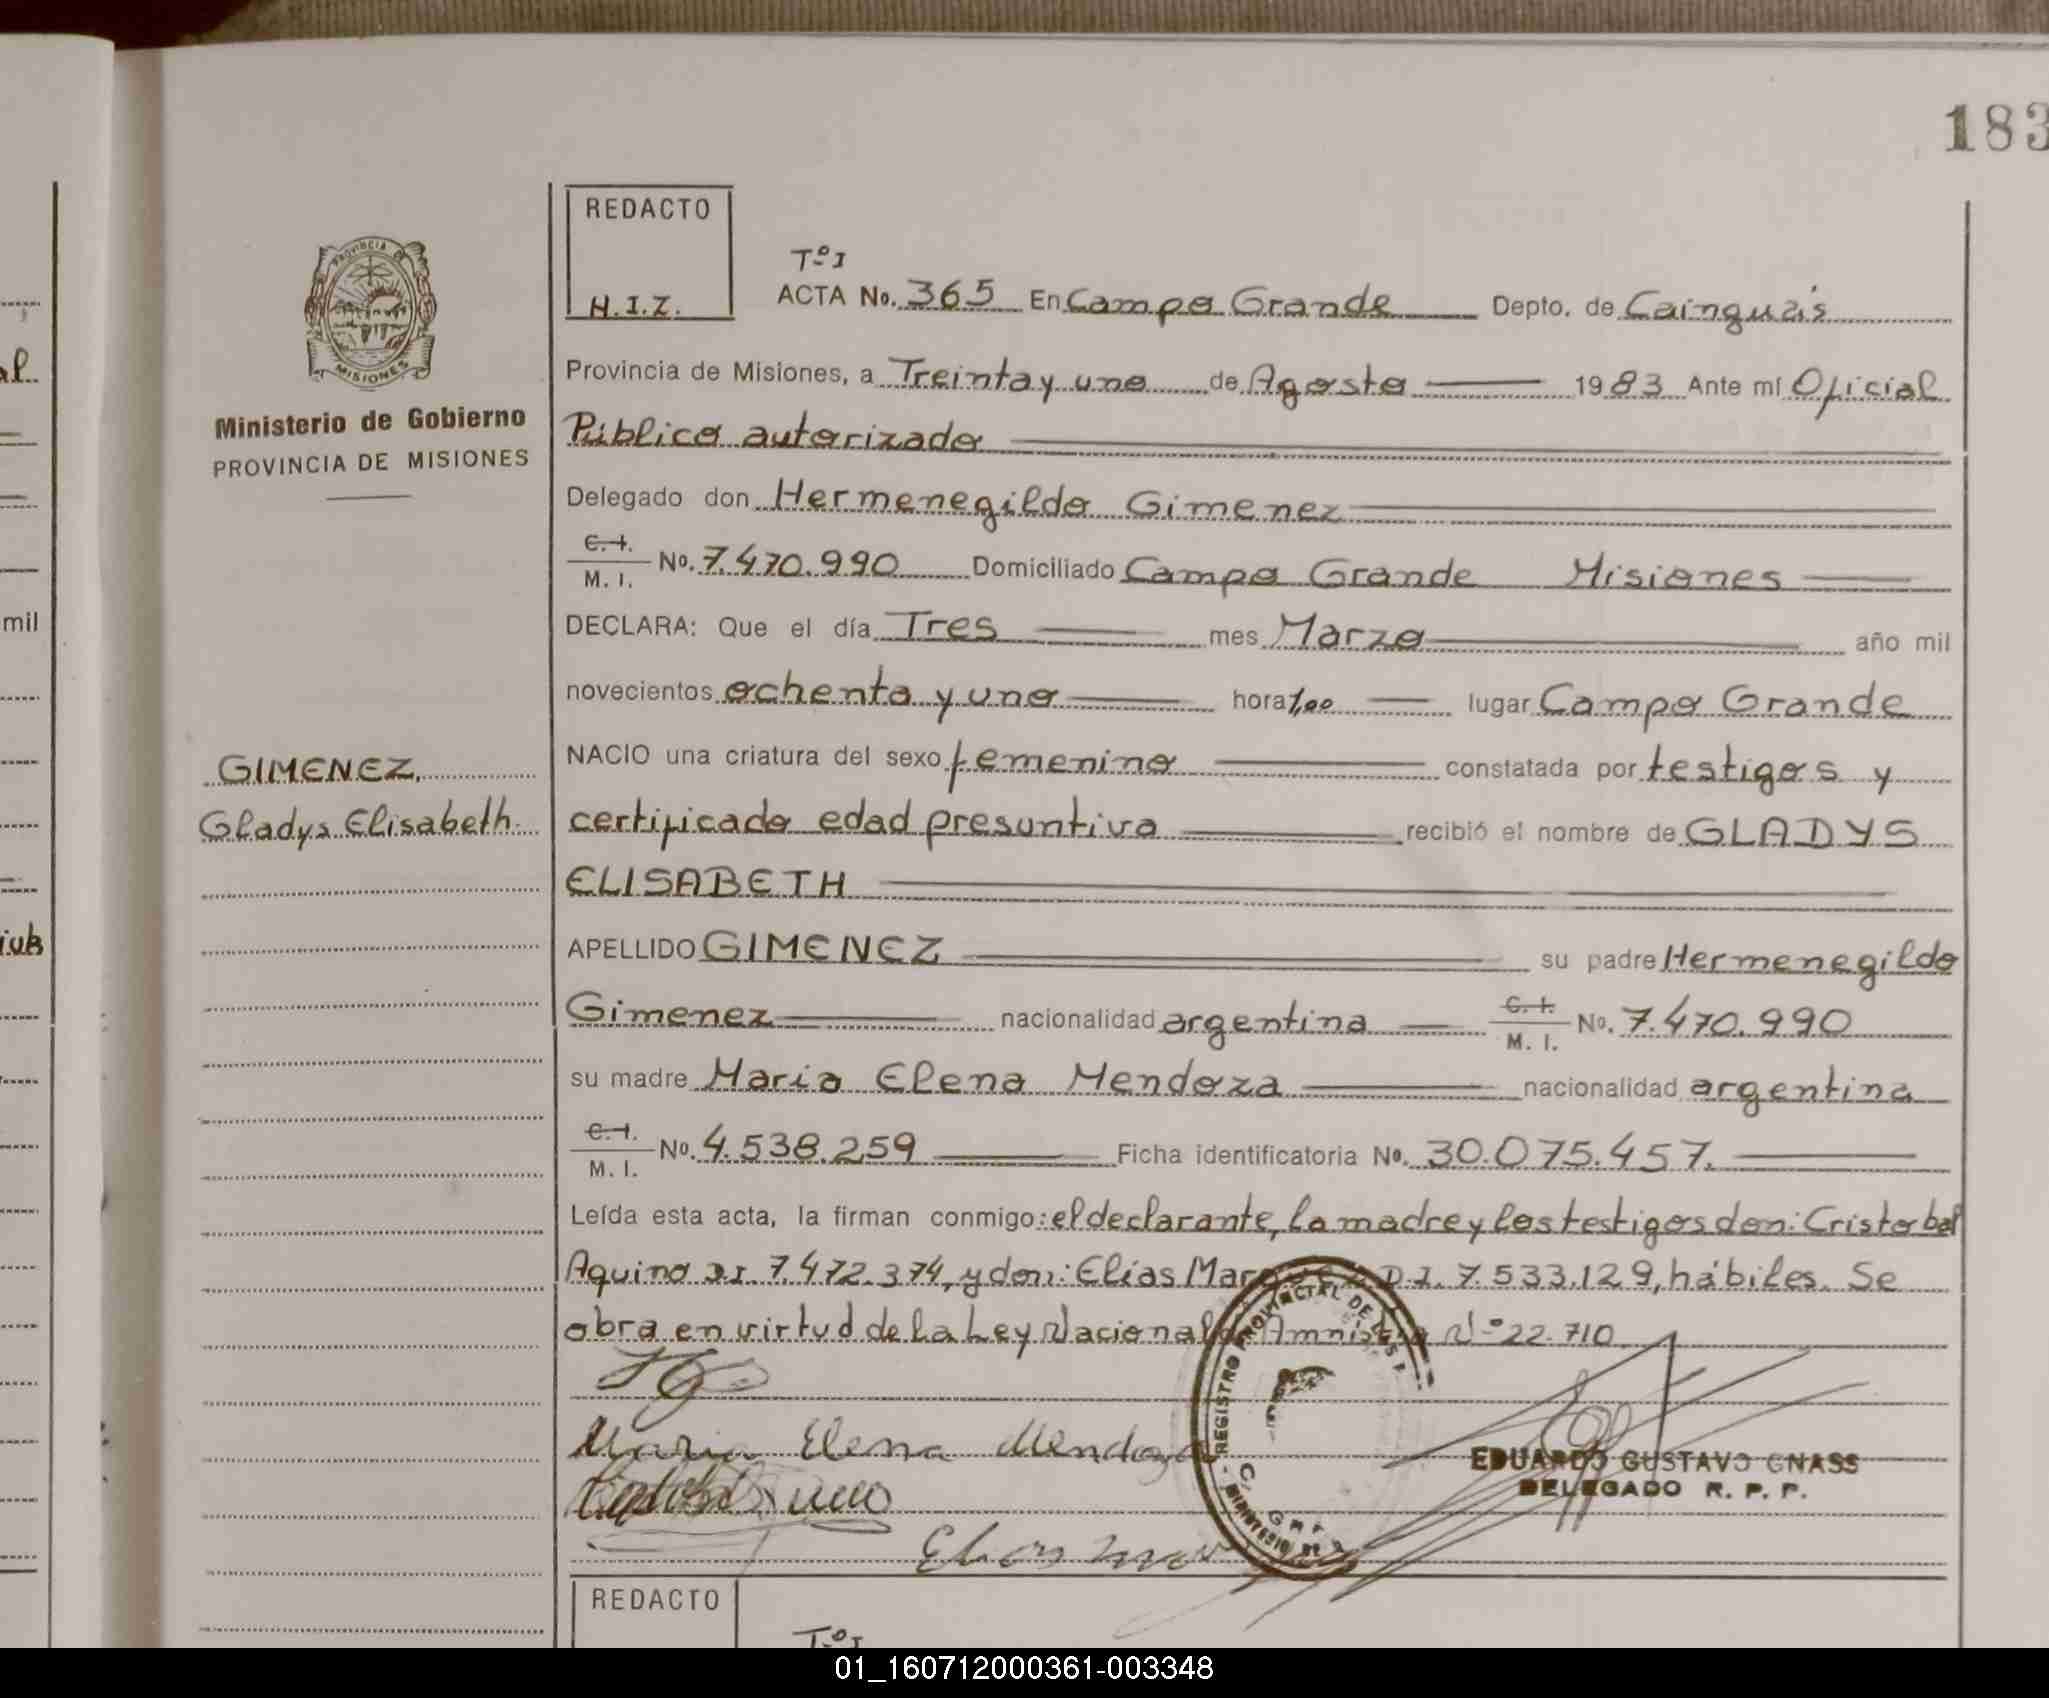 183
REDACTO
H.I.Z.
PROVINCIA DE
MISIONES
Ministerio de Gobierno
PROVINCIA DE MISIONES
Tº I
ACTA No. 365 En Campo Grande Depto. de Cainguás
Provincia de Misiones, a Treinta y uno de Agosto 1983 Ante mí Oficial
Público autorizado
Delegado don Hermenegildo Gimenez
C. I. M. I. No. 7.470.990 Domiciliado Campo Grande Misiones
DECLARA: Que el día Tres mes Marzo año mil
novecientos ochenta y uno hora 1,00 lugar Campo Grande
NACIO una criatura del sexo femenino constatada por testigos y
certificado edad presuntiva recibió el nombre de GLADYS
ELISABETH
GIMENEZ,
Gladys Elisabeth.
APELLIDO GIMENEZ su padre Hermenegildo
Gimenez nacionalidad argentina C. I. M. I. No. 7.470.990
su madre Maria Elena Mendoza nacionalidad argentina
C. I. M. I. No. 4.538.259 Ficha identificatoria No. 30.075.457.
Leída esta acta, la firman conmigo: el declarante, la madre y los testigos don: Cristobal
Aquino D.I. 7.472.374, y don: Elías D.I. 7.533.129, hábiles. Se
obra en virtud de la Ley Nacional de Amnistia Nº 22.710
Maria Elena Mendoza
REGISTRO PROVINCIAL DE LAS P.
MINISTERIO DE
EDUARDO GUSTAVO GNASS
DELEGADO R. P. P.
Elias
REDACTO
Tº I
mil
01_160712000361-003348